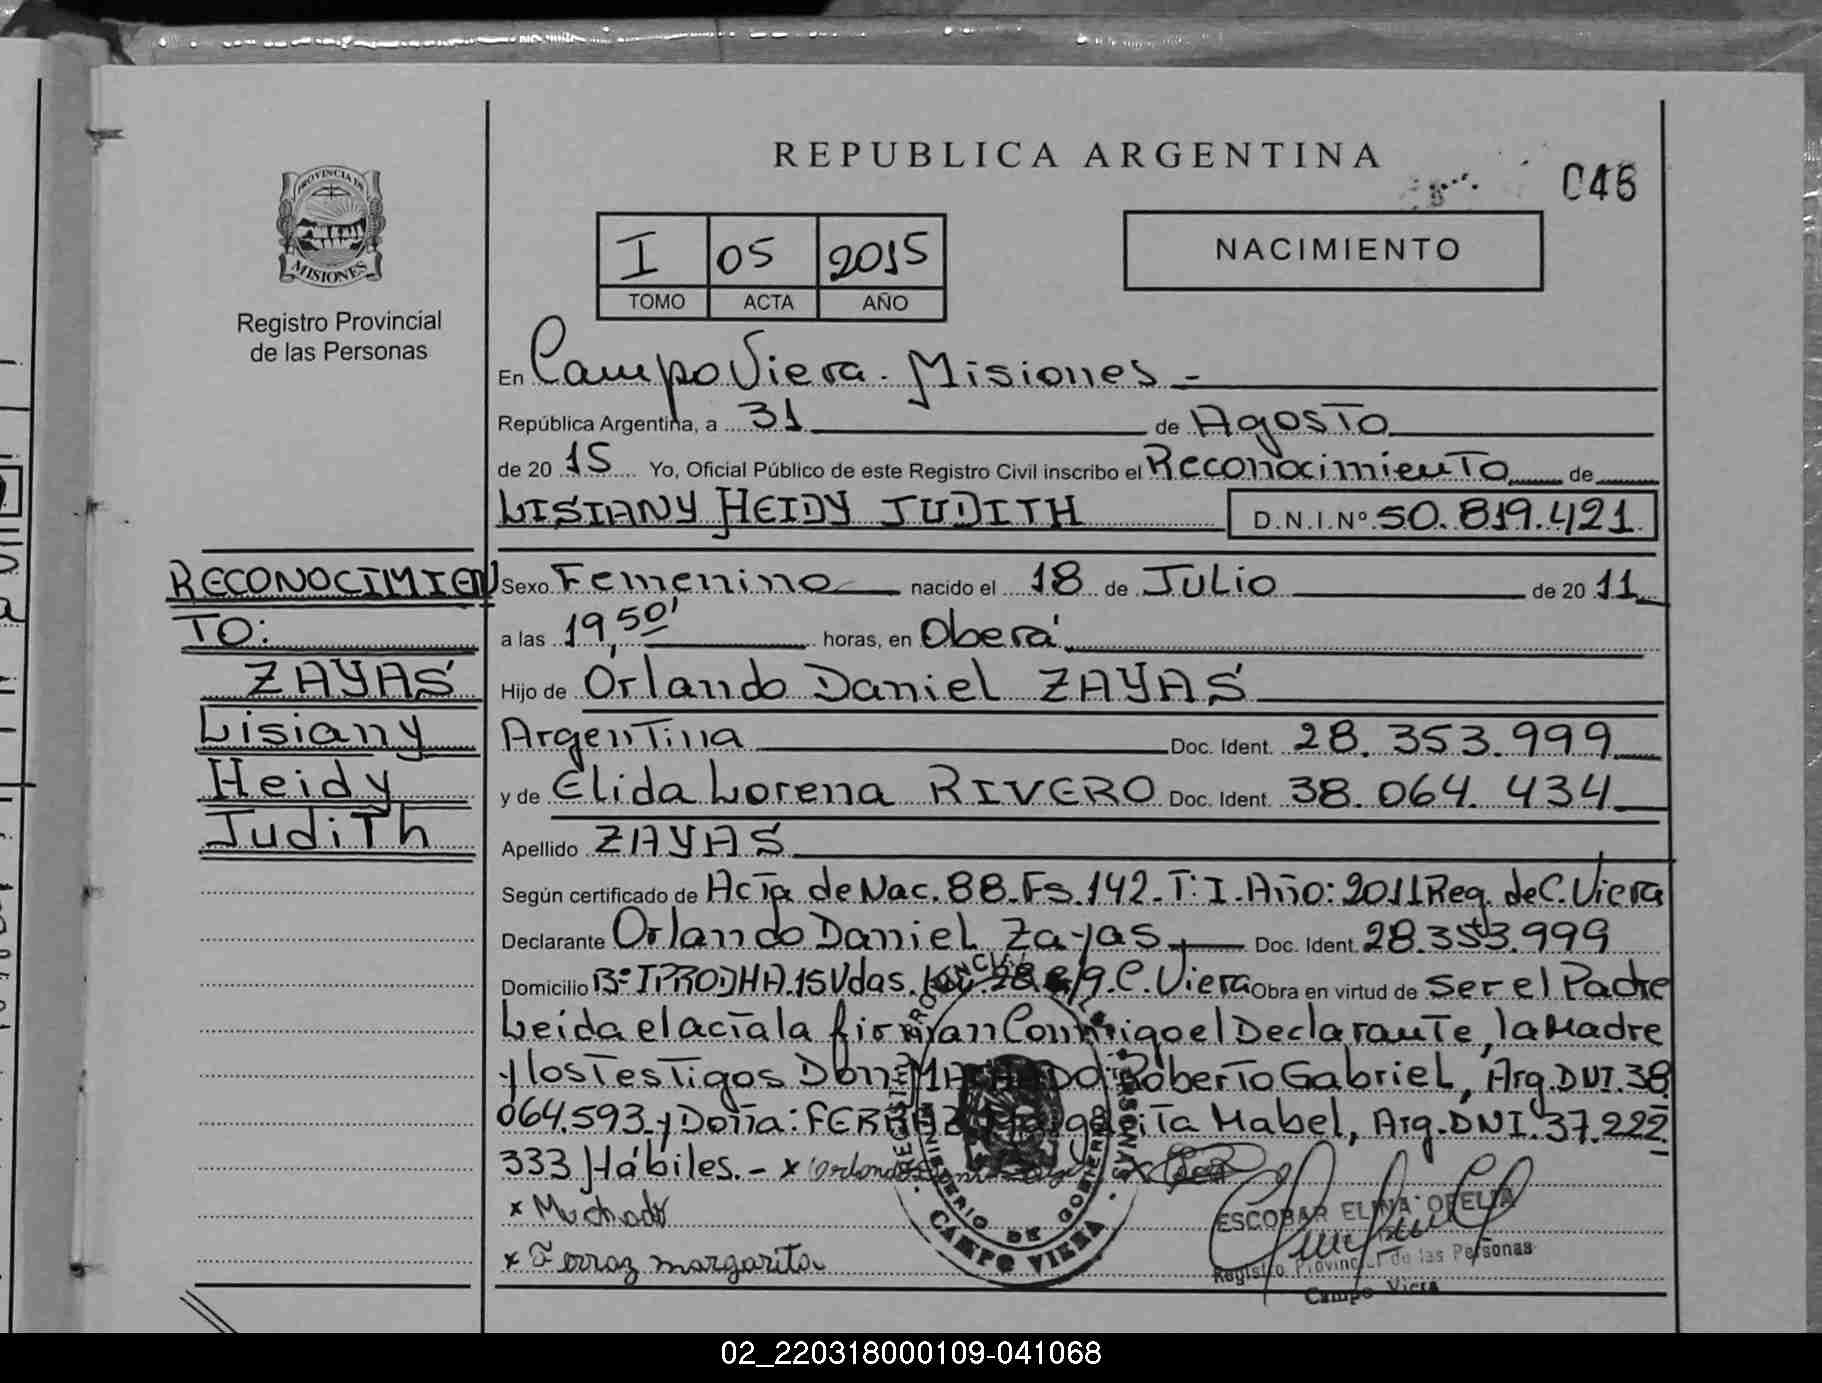 REPUBLICA ARGENTINA
046
PROVINCIA DE
MISIONES
Registro Provincial
de las Personas
I 05 2015
TOMO ACTA AÑO
NACIMIENTO
En Campo Viera. Misiones -
República Argentina, a 31 de Agosto
de 20 15 Yo, Oficial Público de este Registro Civil inscribo el Reconocimiento de
LISIANY HEIDY JUDITH D.N.I.Nº 50.819.421
RECONOCIMIEN
TO:
ZAYAS
Lisiany
Heidy
Judith
Sexo Femenino nacido el 18 de Julio de 20 11
a las 19,50' horas, en Oberá
Hijo de Orlando Daniel ZAYAS
Argentina Doc. Ident. 28.353.999
y de Elida Lorena RIVERO Doc. Ident. 38.064.434
Apellido ZAYAS
Según certificado de Acta de Nac. 88. Fs. 142. T: I. Año: 2011 Reg. de C. Viera
Declarante Orlando Daniel Zayas Doc. Ident. 28.353.999
Domicilio Bº IPRODHA. 15 Vdas. C. Viera Obra en virtud de ser el Padre
Leida el acta la firman Conmigo el Declarante, la Madre
y los Testigos Don: MACHADO Roberto Gabriel, Arg. DNI. 38.
064.593 y Doña: FERRAZ Margarita Mabel, Arg. DNI. 37.222.
333 Hábiles. - x
x Machado
x Ferraz margarita
MINISTERIO DE GOBIERNO
CAMPO VIERA
ESCOBAR ELINA OFELIA
Registro Provincial de las Personas
Campo Viera
02_220318000109-041068